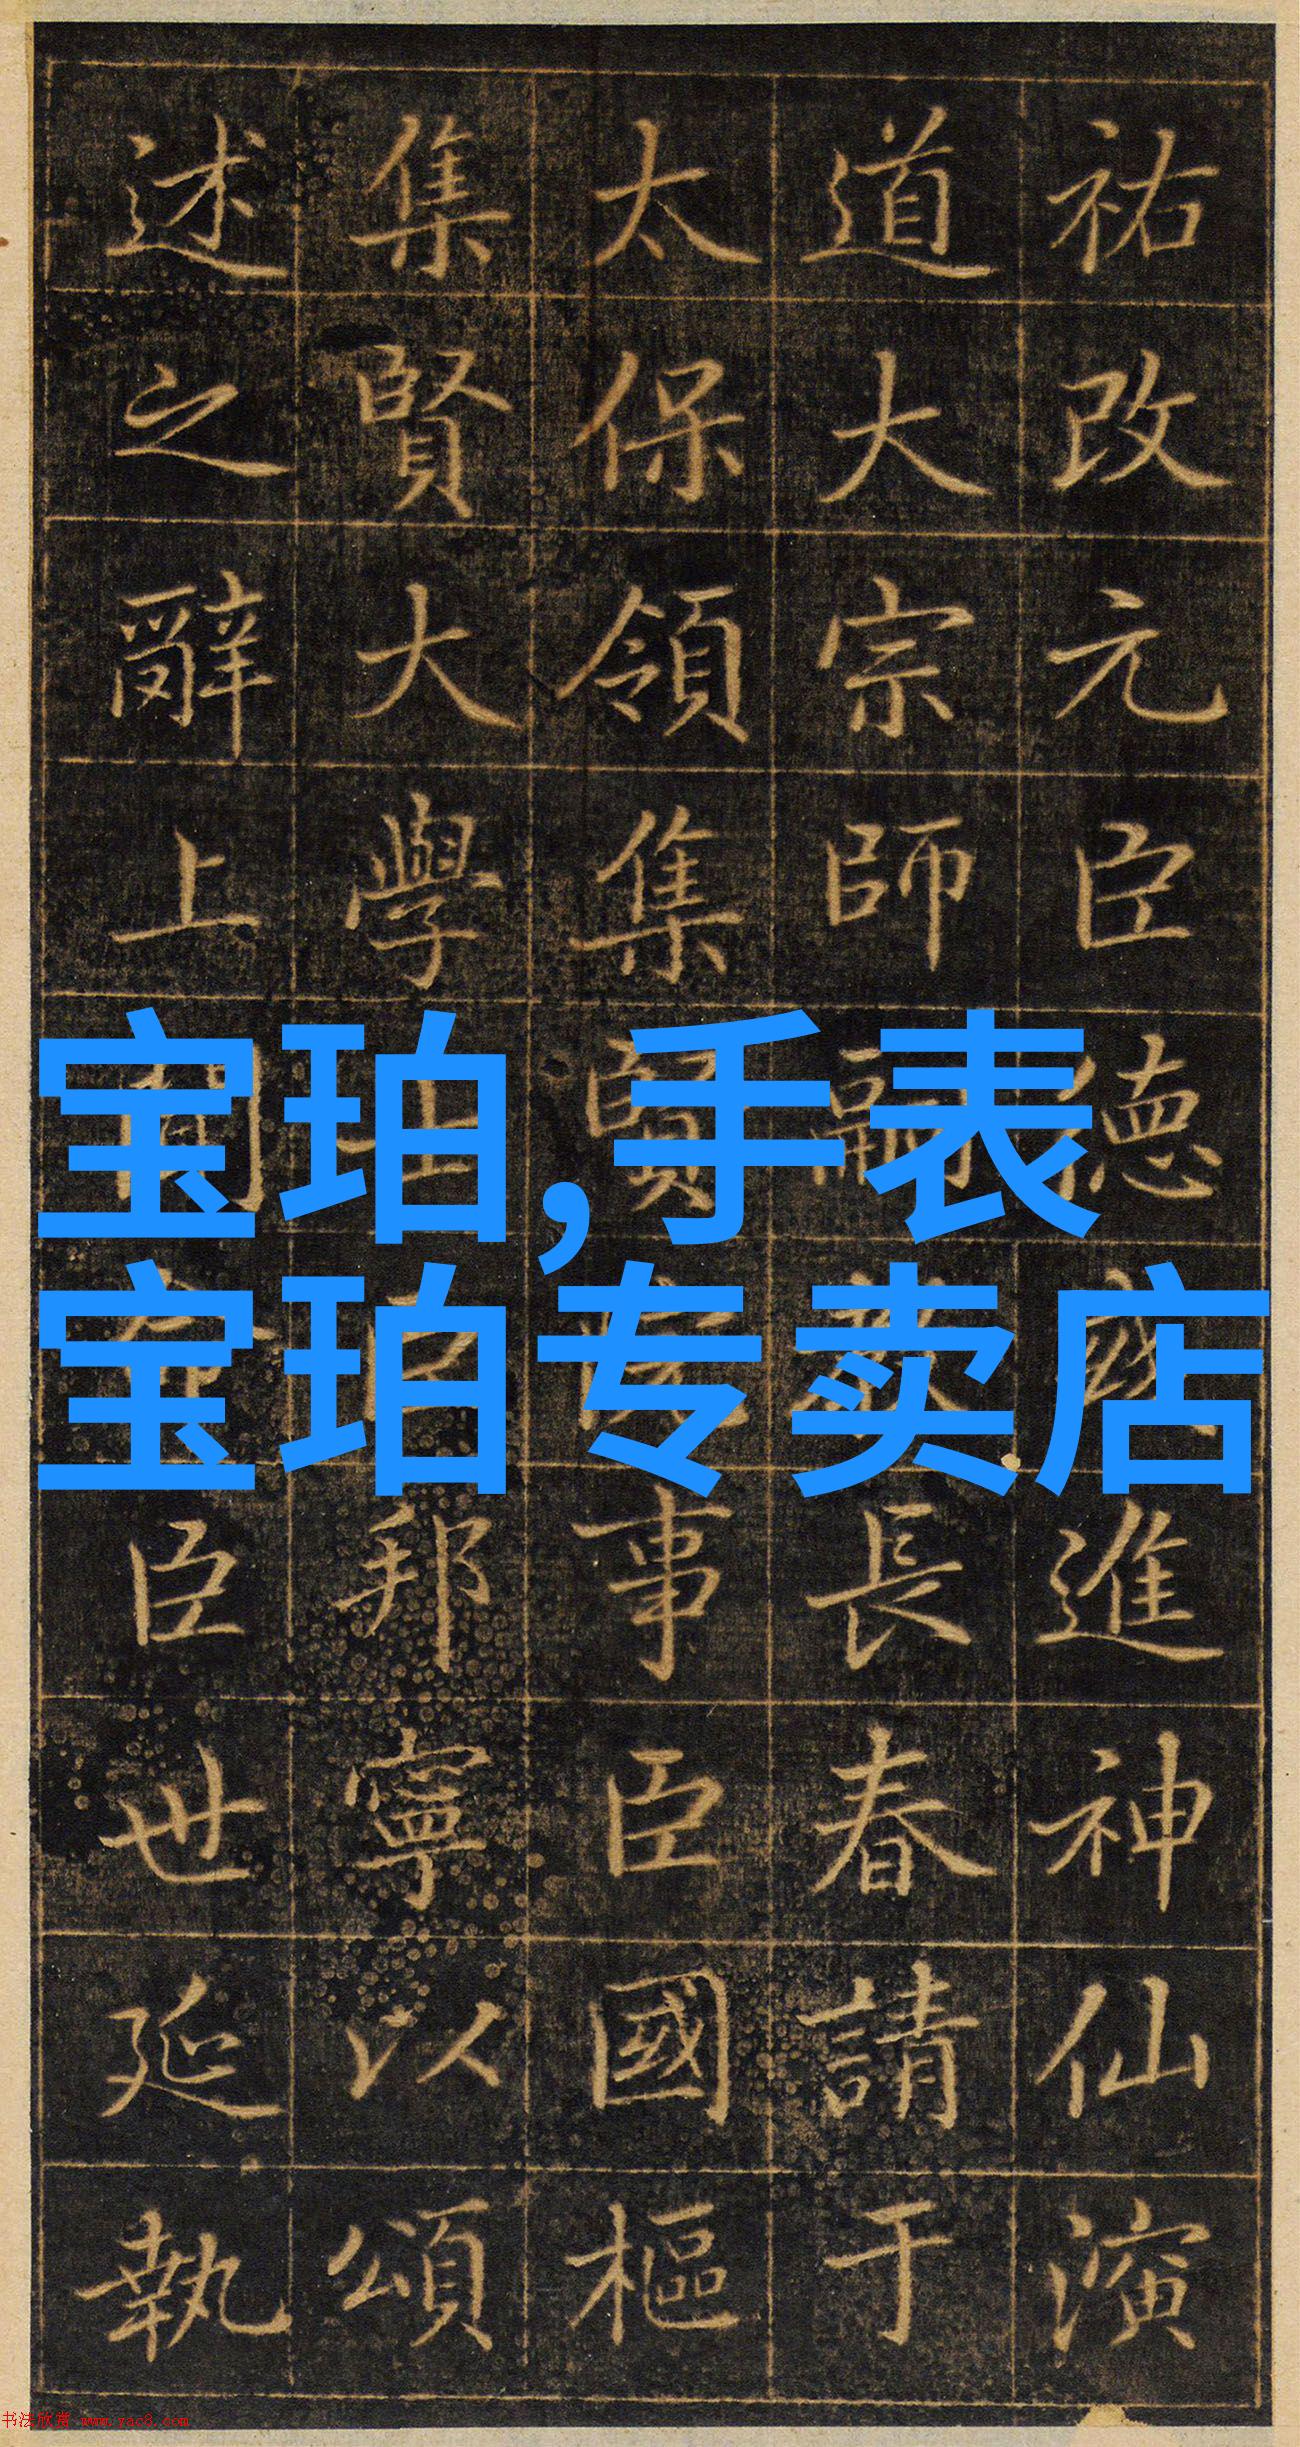 祐改元臣德進神仙演
道大宗師嗣長春請于
太保領集賢事臣國樞
集賢大學士臣邦寧以頌
述之辭上臣世延執
宝珀,手表
宝珀专卖店
书法欣赏 www.yac8.com